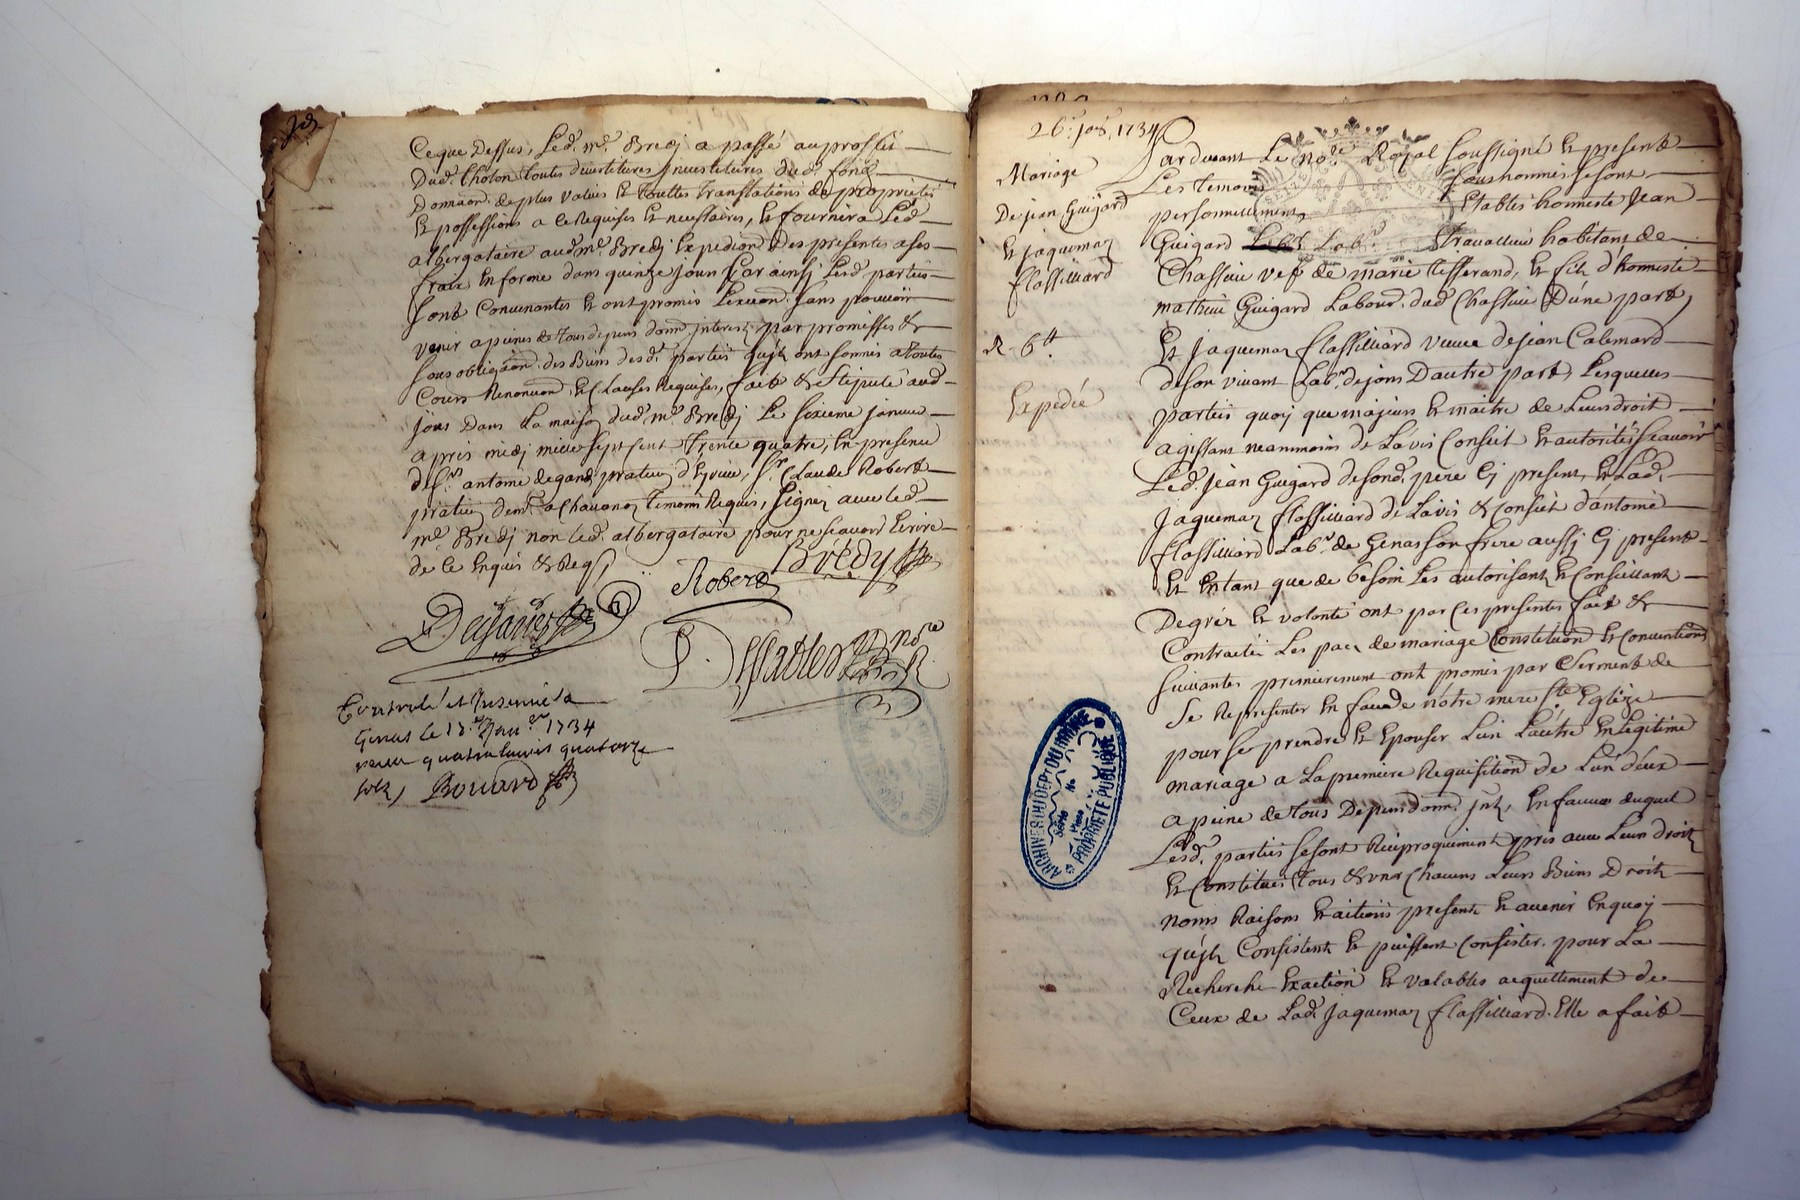 Ce que Dessus, Led. mr. Bredj a passé au proffit
Dud. Choton toutes divertitures, investitures dud. fond
Donnaon. de plus values Et Touttes Translations de propriété
Et possessions a ce Requises Et necessaires, Et fournira Led.
albergataire aud. mr. Bredj Expedion. des presentes a ses
fraix En forme dans quinze jours par ainsj Lesd. parties
sont Convenantes Et ont promis sans pouvoir
venir a peines de tous depens domm. interest par promesses &
sous obligaon. des Biens desd. parties qu'jls ont soumis a toutes
Cours Renonvaon. Et Clauses Requises, fait & stipulé aud.
jons Dans La maison dud. mr. Bredj Le sixieme janvier
apres midj mille sept cent Trente quatre, En presence
de sr. antoine degand praticien sr. Claude Robert
praticien demt. a Chavanoz Temoins Requis, signez avec led.
mr. Bredj non led. albergataire pour ne scavoir Ecrire
de ce Enquis & Reqs.
Brédy
Robert
Controlé et Insinué a
Genas le 13e. Janvier 1734
receu quatre livres quatorze
sols, Bouvard
26e. jer. 1734
Mariage
De jean Guigard
Et jaquemaz
flassilliard
R 6 tt
Expedié
Pardevant Le nore. Royal soussigné Et present
Les Temoins sousnommes se sont
personnellement Etablis honneste jean
Guigard Labr. Travailleur habitant de
Chassieu vef de marie Tisserand, Et fils d'honneste
mathieu Guigard Labour. dud. Chassieu D'une part,
Et jaquemaz flassilliard veuve de jean Calemard
de son vivant Labr. de jons D'autre part, Lesquelles
parties quoj que majeurs Et maitre de Leurs droit
agissant neanmoins de L'avis Conseit Et autorités scavoir
Led. jean Guigard de sond. pere Cj present, Et Lad.
Jaquemaz flassilliard de L'avis & Conseit d'antoine
flassilliard Labr. de Genas son frere aussj Cj present
Et Entant que de besoin Les autorisant Et Conseillant
De gréz Et volonté ont par Ces presentes fait &
Contractéz Les pacz de mariage Constitutions Et Conventions
suivantes premierement ont promis par Serment de
Se Representer En face de nôtre mere Ste. Eglize
pour se prendre Et Epouser L'un L'autre En Legitime
mariage a La premiere Requisition de L'un d'eux
a peine de tous Depens domm. jnt, En faveur duquel
Lesd. parties se sont Reciproquement pris avec Leurs droits
Et Constitués Tous & uns Chacuns Leurs Biens Droits
noms Raisons Et actions presents Et avenir En quoj
qu'jls Consistent Et puissent Consister. pour La
Recherche Exaction Et valables acquittement de
Ceux de Lad. Jaquemaz flassilliard. Elle a fait
ARCHIVES DU DEPT DU RHÔNE
Série
No
PROPRIETE PUBLIQUE